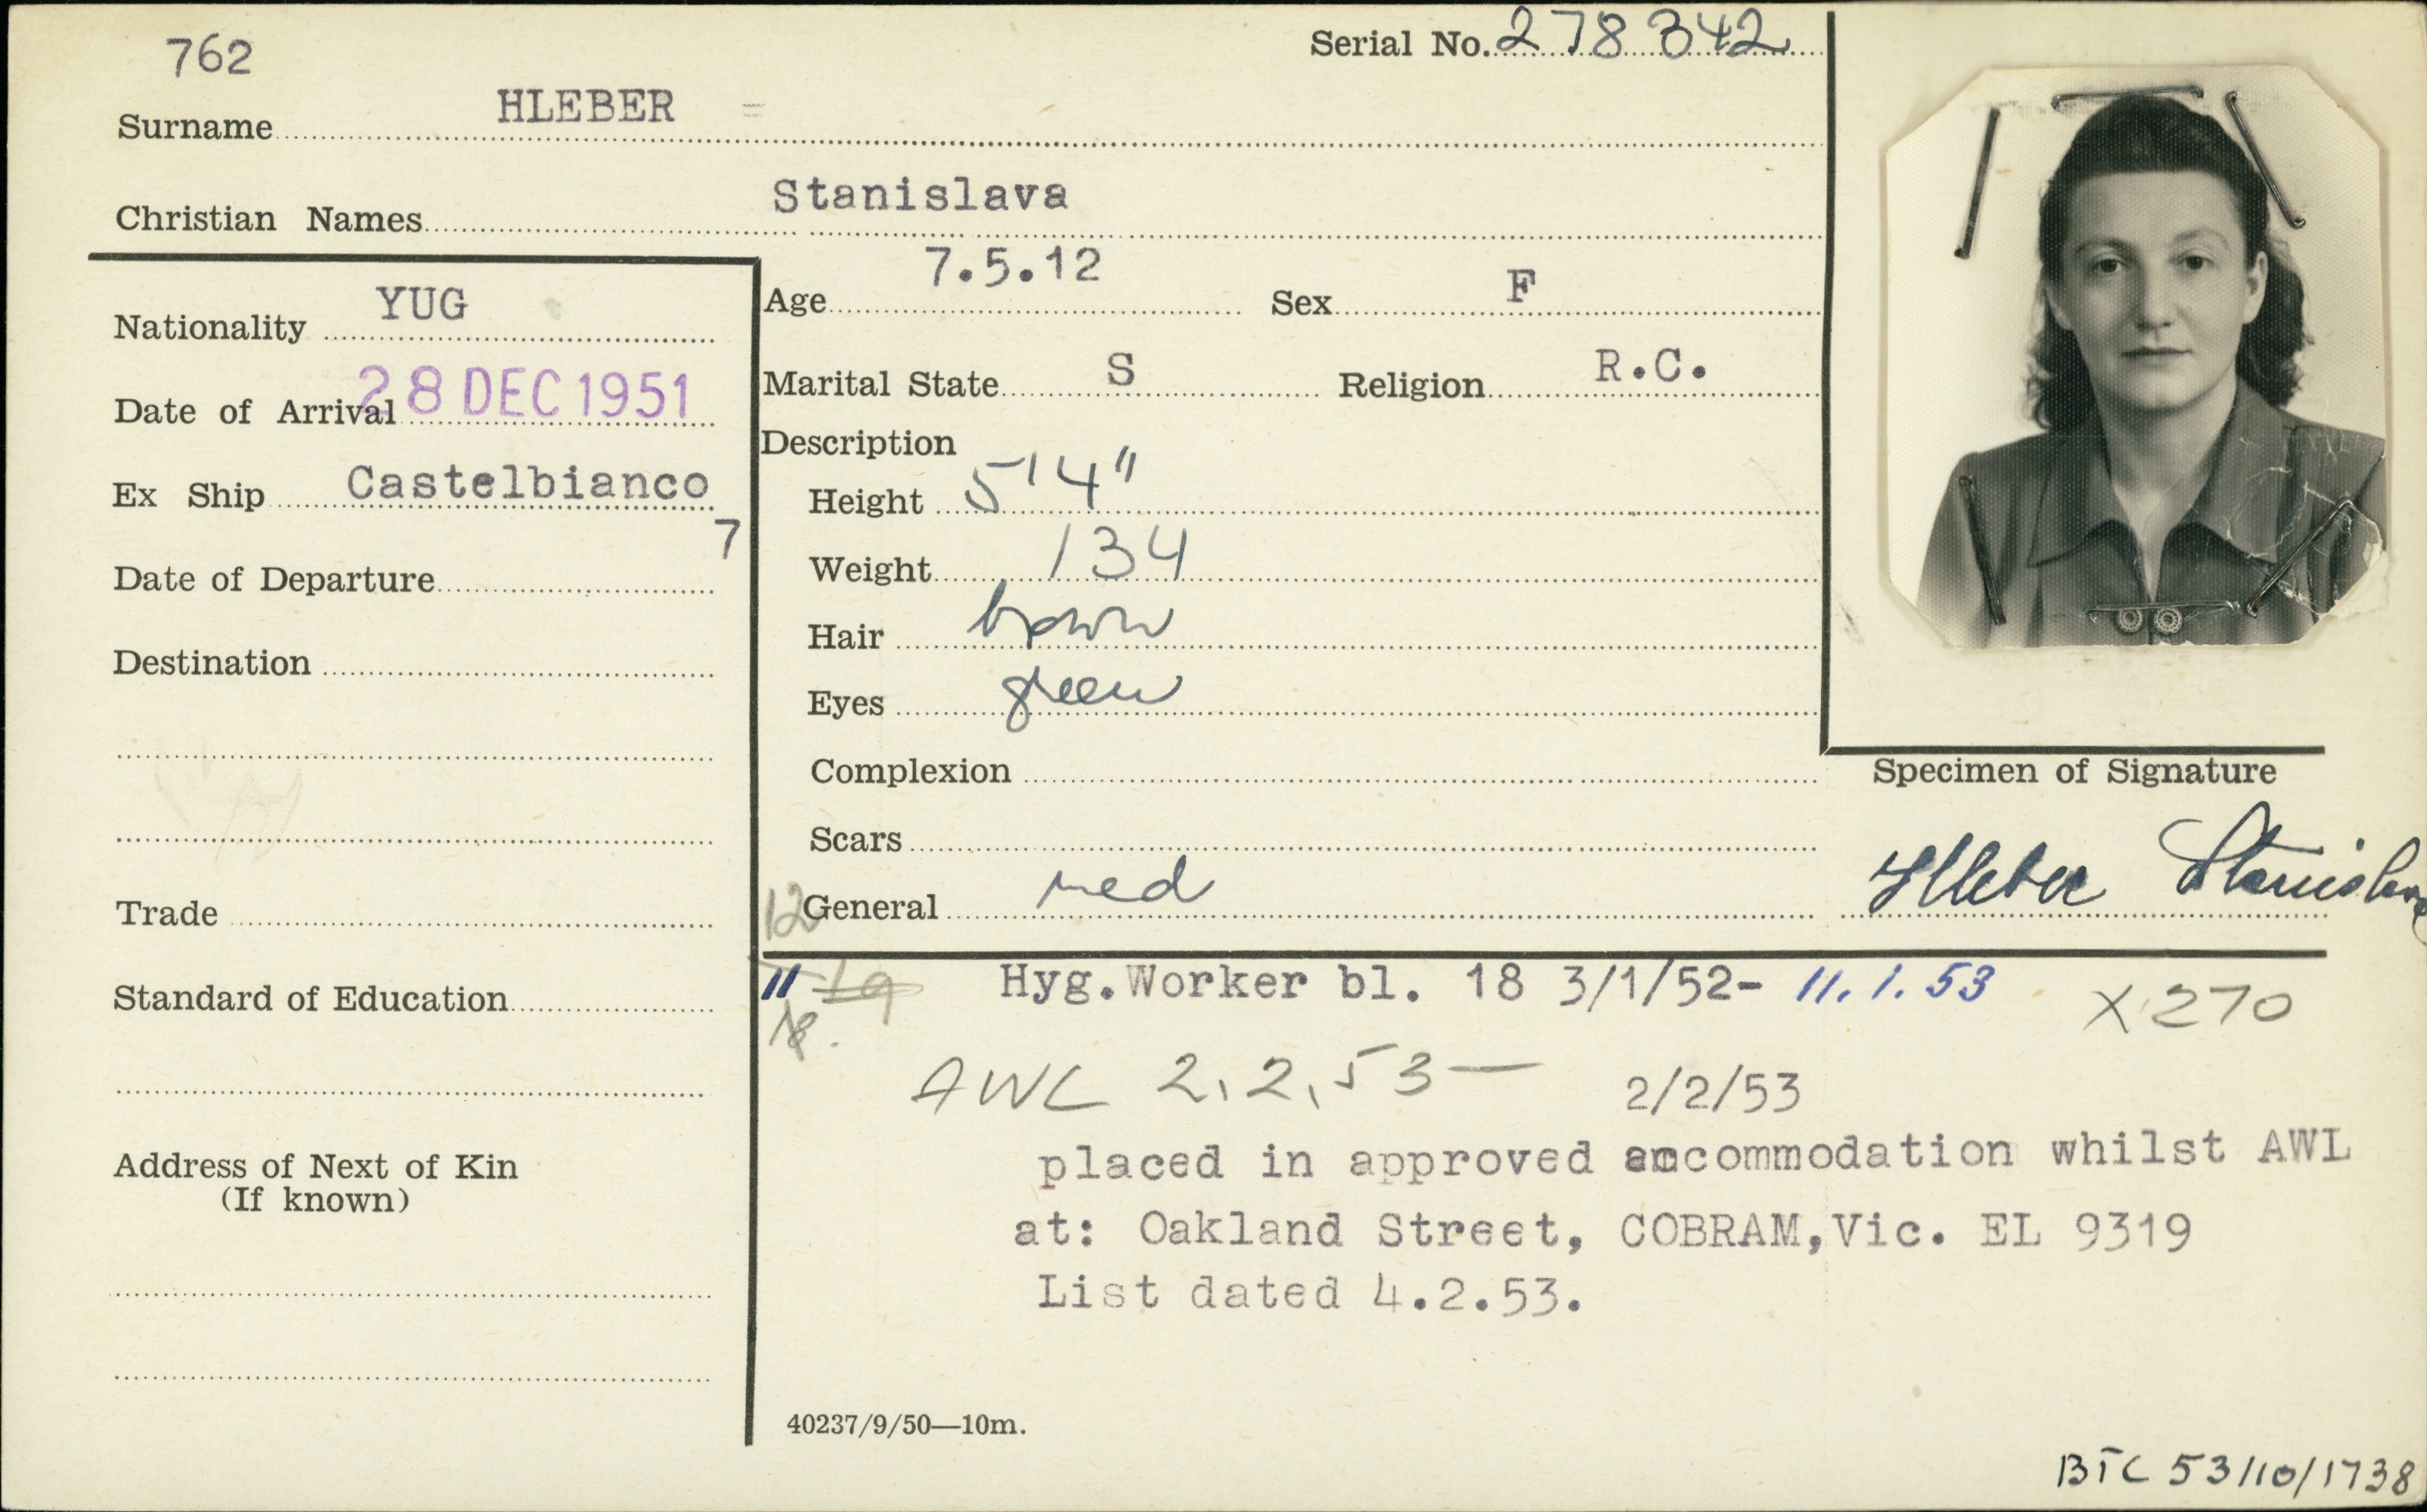 762
Serial No. 278342
Surname HLEBER =
Christian Names Stanislava
Nationality YUG
Age 7.5.12 Sex F
Date of Arrival 28 DEC 1951
Marital State S Religion R.C.
Ex Ship Castelbianco
7
Date of Departure
Destination
Description
Height 5'4"
Weight 134
Hair brown
Eyes green
Complexion
Scars
12 General med
Specimen of Signature
Hleber Stanislava
Trade
Standard of Education
Address of Next of Kin
(If known)
11 19 Hyg.Worker bl. 18 3/1/52- 11.1.53 X270
18.
AWL 2.2.53 — 2/2/53
placed in approved accommodation whilst AWL
at: Oakland Street, COBRAM,Vic. EL 9319
List dated 4.2.53.
40237/9/50—10m.
BTC 53/10/1738